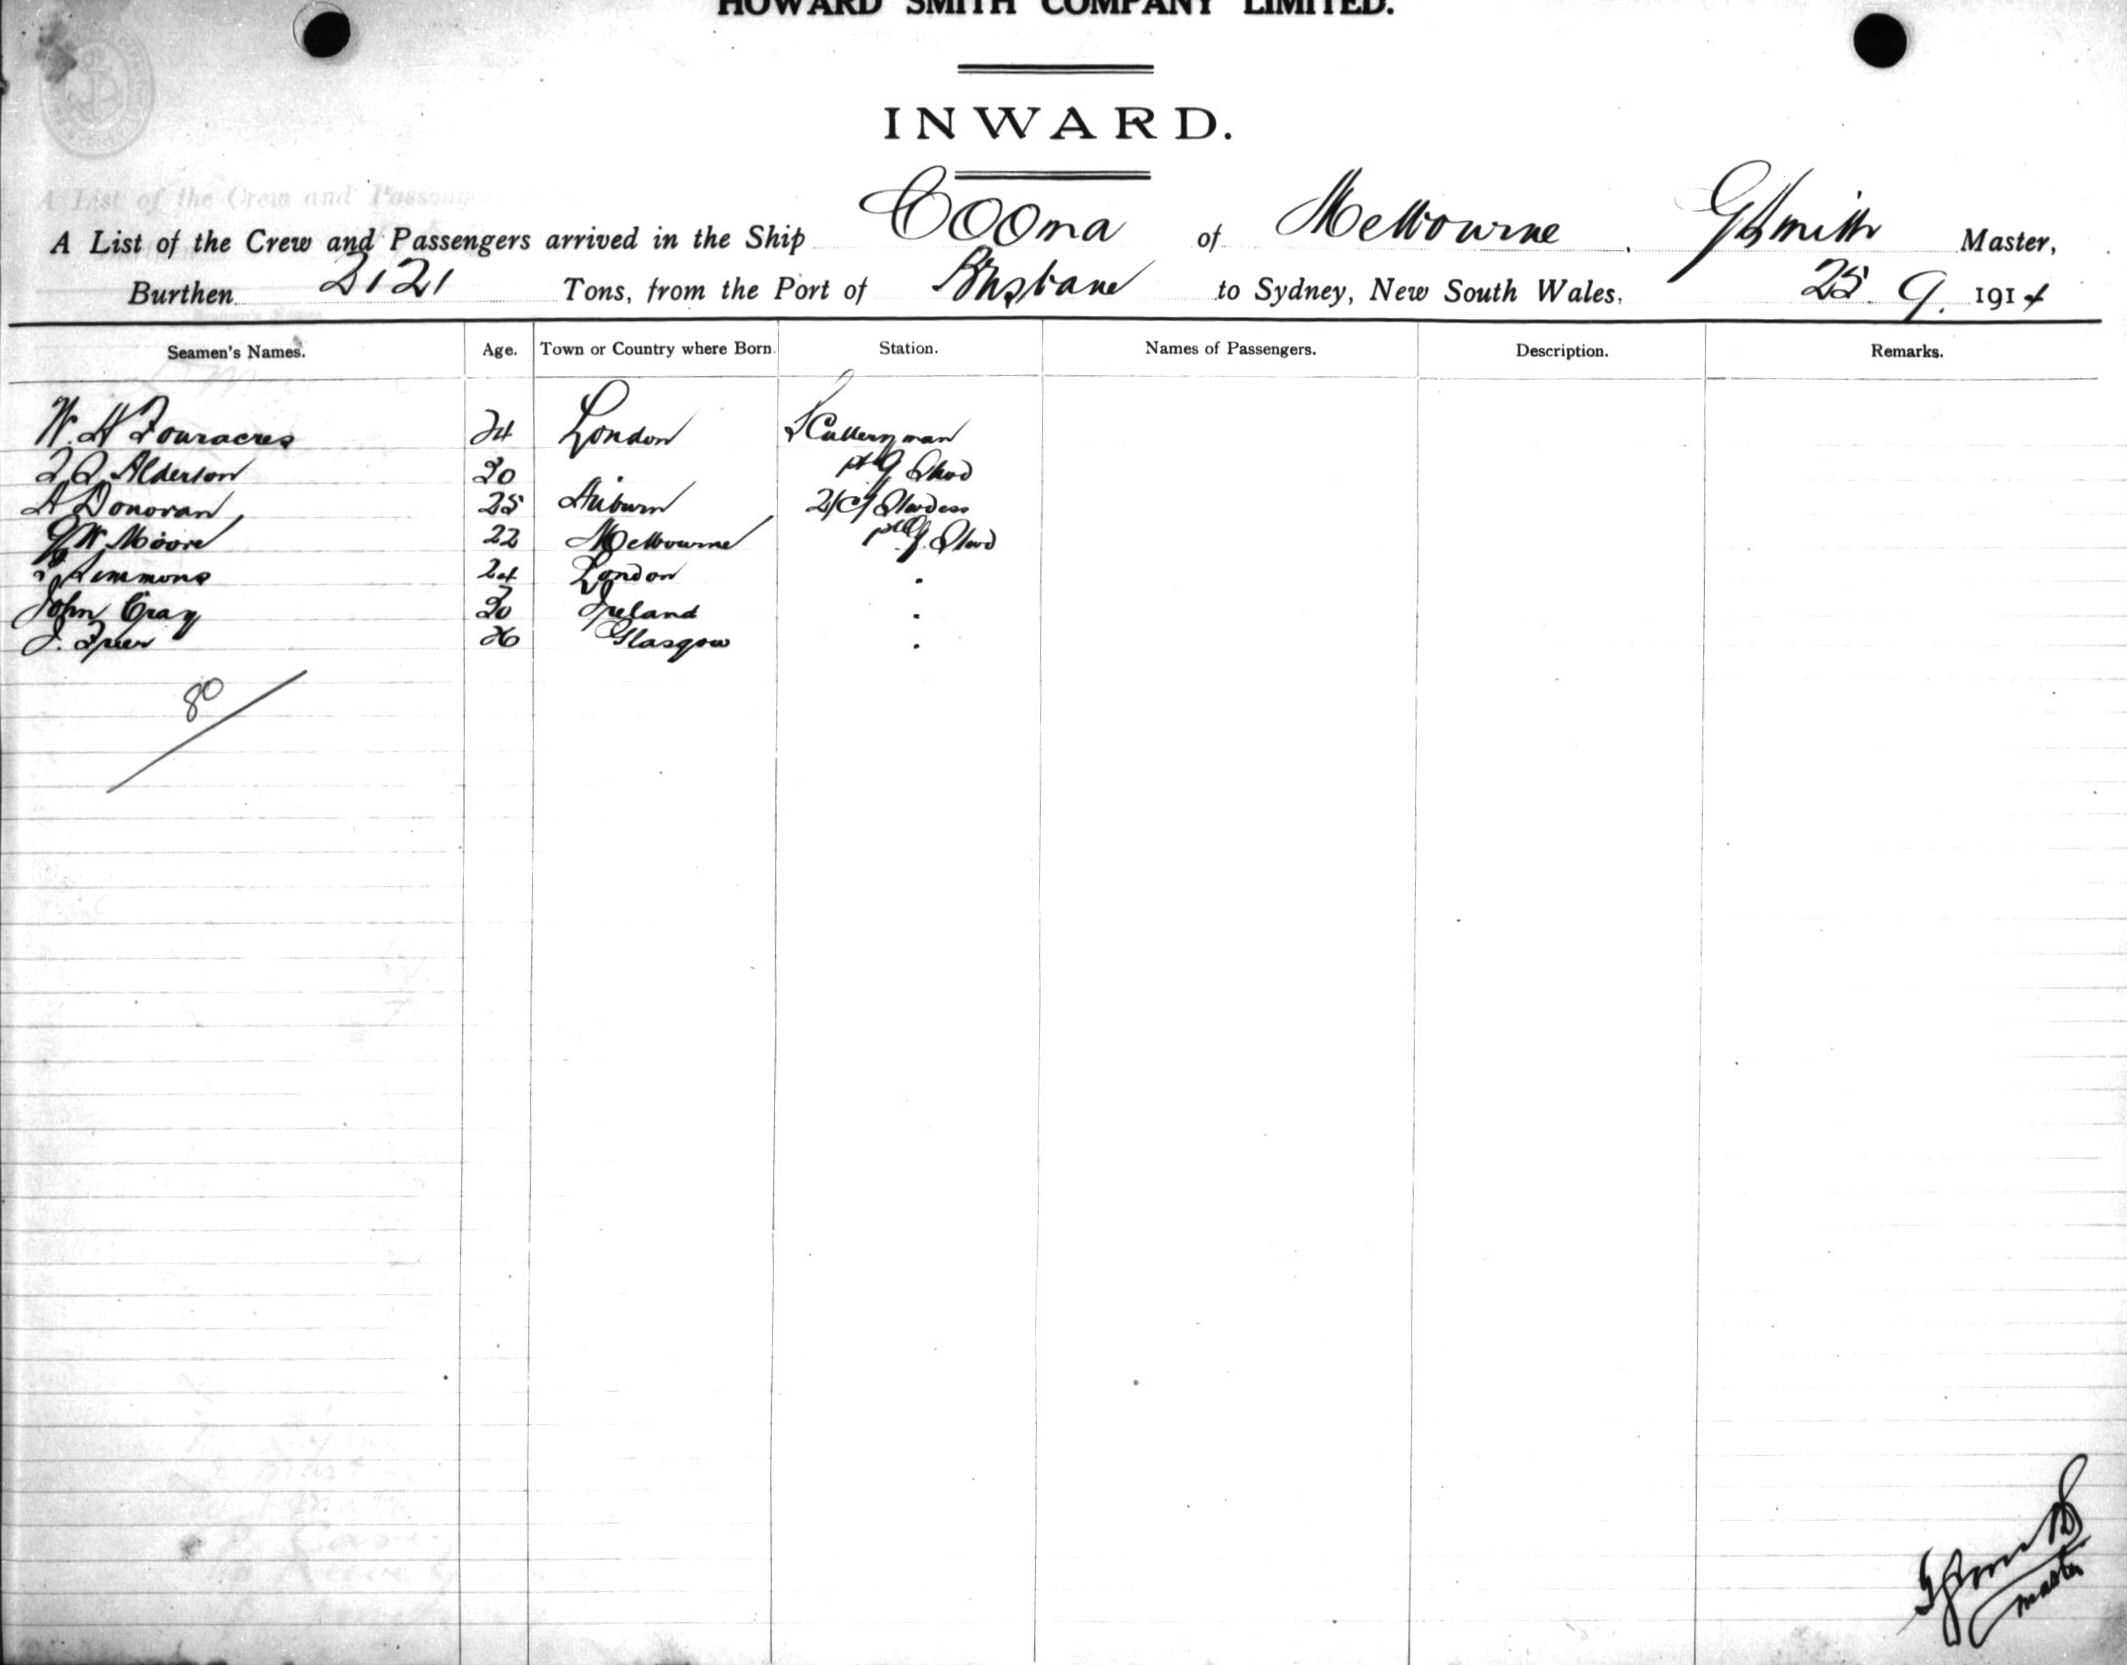 HOWARD SMITH COMPANY LIMITED.
INWARD.
A List of the Crew and Passengers arrived in the Ship Cooma of Melbourne, G Smith Master,
Burthen 2121 Tons, from the Port of Brisbane to Sydney, New South Wales, 25. 9. 1914
Seamen's Names. Age. Town or Country where Born. Station. Names of Passengers. Description. Remarks.
W. H Fouracres 24 London Scullery man
Alderson 20
A Donovan 25 Auburn 2/Cl Stwdess
G W Moore 22 Melbourne
Simmons 24 London
John Gray 30 Ireland
J. Freer 26 Glasgow
80
G Smith
Master